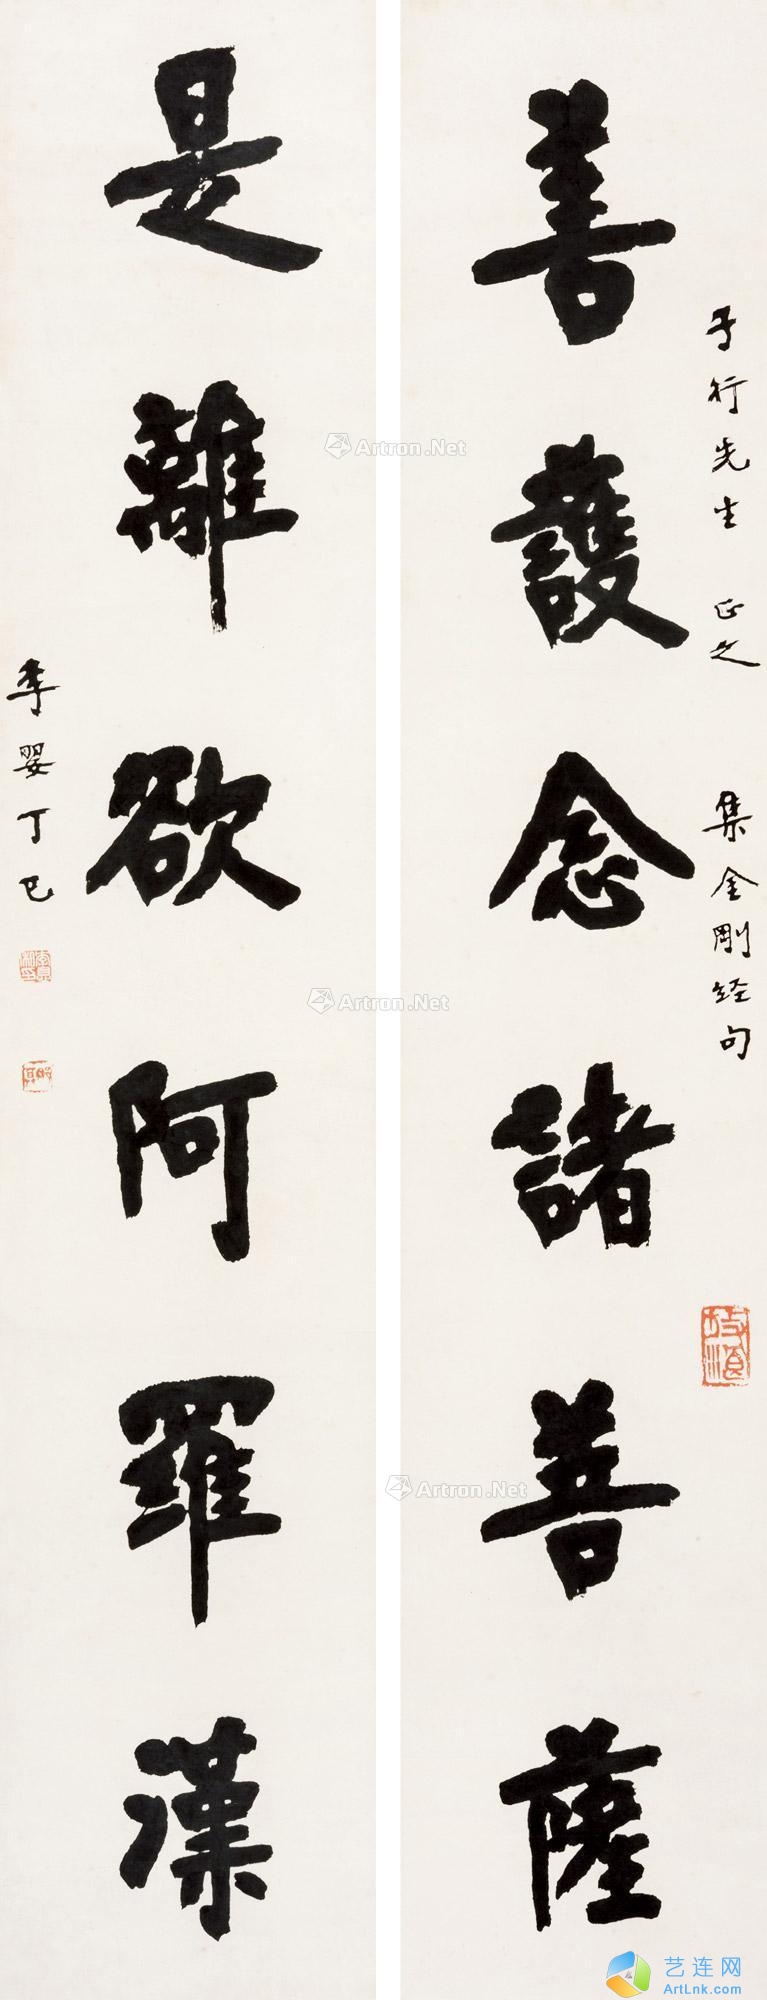 善護念諸菩薩
子行先生 正之 集金剛經句
是離欲阿羅漢
李嬰丁巳
Artron.Net
Artron.Net
Artron.Net
艺连网
ArtLnk.com